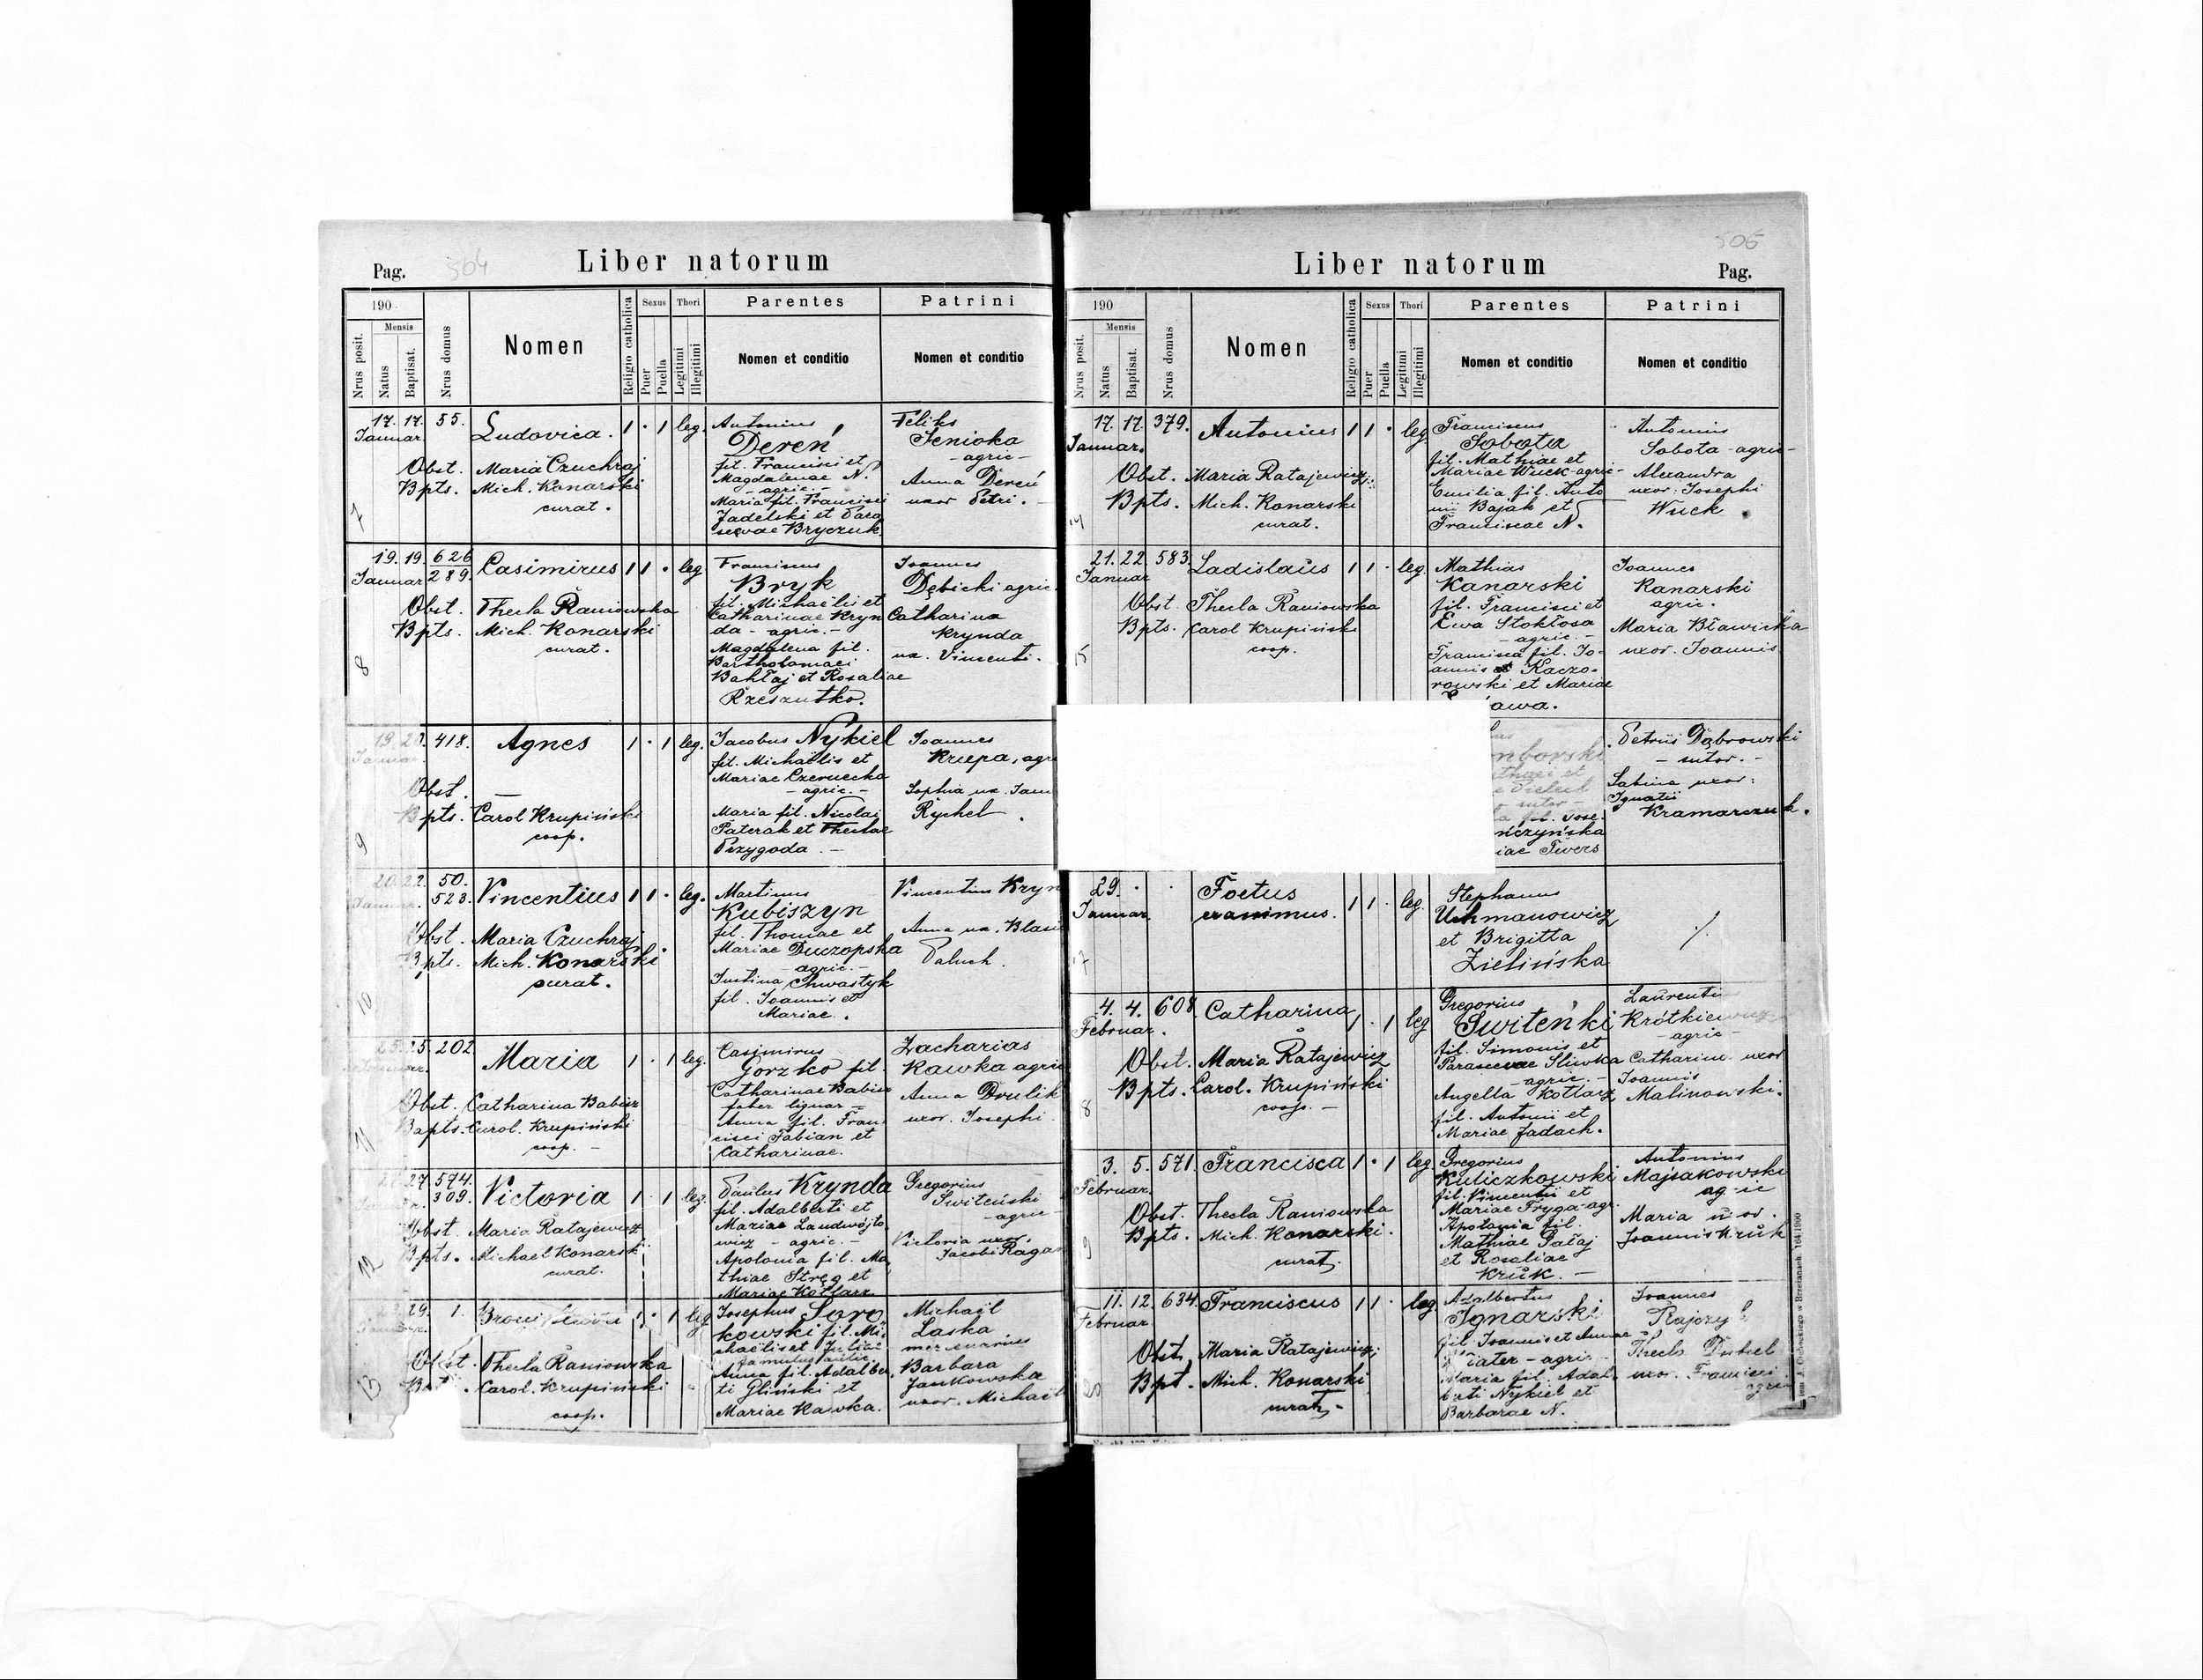 Pag. 504
Liber natorum
190
Nrus posit.
Mensis
Natus
Baptisat.
Nrus domus
Nomen
Religio catholica
Sexus
Puer
Puella
Thori
Legitimi
Illegitimi
Parentes
Nomen et conditio
Patrini
Nomen et conditio
7
17. 17. 55.
Januar.
Ludovica. 1 · 1 leg.
Obst. Maria Czuchraj
Bpts. Mich. Konarski
curat.
Antonius
Dereń
fil. Francisci et
Magdalenae N.
- agric. -
Maria fil. Francisci
Jadelski et Para
scevae Bryczuk
Feliks
Senioka
- agric -
Anna Dereń
uxor Petri. -
8
19. 19. 626
289.
Januar
Casimirus 1 1 · leg
Obst. Thecla Raniowska
Bpts. Mich. Konarski
curat.
Franciscus
Bryk
fil. Michaëlis et
Catharinae Kryn
da - agric. -
Magdalena fil.
Bartholomaei
Bahłaj et Rosaliae
Rzeszutko.
Joannes
Dębicki agric.
Catharina
Krynda
ux. Vincenti.
9
19. 20. 418.
Januar.
Agnes 1 · 1 leg.
Obst. —
Bpts. Carol Krupiński
coop.
Jacobus Nykiel
fil. Michaëlis et
Mariae Czernecka
- agric. -
Maria fil. Nicolai
Paterak et Theclae
Przygoda. -
Joannes
Krupa, agr
Sophia ux. Joan
Rychel.
10
20. 22. 50.
528.
Januar.
Vincentius 1 1 · leg.
Obst. Maria Czuchraj
Bpts. Mich. Konarski
curat.
Martinus
Kubiszyn
fil. Thomae et
Mariae Duczopska
- agric. -
Justina Chwastyk
fil. Joannis et
Mariae.
Vincentius Kryn
Anna ux. Blasii
Paluch.
11
25. 25. 202
Maria 1 · 1 leg.
Obst. Catharina Babisz
Bapts. Carol. Krupiński
coop. -
Casimirus
Gorzko fil.
Catharinae Babisz
faber lignar -
Anna fil. Fran
cisci Fabian et
Catharinae.
Zacharias
Kawka agric
Anna Drulik
uxor. Josephi.
12
27 574.
309.
Victoria 1 · 1 leg.
Obst. Maria Ratajewicz
Bpts. Michael Konarski
curat.
Paulus Krynda
fil. Adalberti et
Mariae Landwójto
wicz - agric. -
Apolonia fil. Ma
thiae Stręg et
Mariae Kotlarz
Gregorius
Switeński
- agric -
Victoria uxor.
Jacobi Ragan
13
29. 1.
1 · 1 leg
Obst. Thecla Raniowska
Bpt. Carol. Krupiński
coop.
Josephus Soro
kowski fil. Mi
chaëlis et Juliae
Anna fil. Adalber
ti Gliński et
Mariae Kawka.
Michaël
Laska
mercenarius
Barbara
Jankowska
uxor. Michaël
505
Liber natorum
Pag.
190
Nrus posit.
Mensis
Natus
Baptisat.
Nrus domus
Nomen
Religio catholica
Sexus
Puer
Puella
Thori
Legitimi
Illegitimi
Parentes
Nomen et conditio
Patrini
Nomen et conditio
17. 17. 379.
Januar.
Antonius 1 1 · leg.
Obst. Maria Ratajewicz
Bpts. Mich. Konarski
curat.
Franciscus
Sobota
fil. Mathiae et
Mariae Wuck-agric-
Emilia fil. Anto
nii Bajak et
Franciscae N.
Antonius
Sobota - agric -
Alexandra
uxor: Josephi
Wuck
5
21. 22. 583
Januar
Ladislaus 1 1 · leg.
Obst. Thecla Raniowska
Bpts. Carol Krupiński
coop.
Mathias
Kanarski
fil. Francisci et
Ewa Stokłosa
- agric. -
Francisca fil. Jo-
annis Kaczo-
rowski et Mariae
awa.
Joannes
Kanarski
agric.
Maria Bławicka
uxor. Joannis
nborski
thaei et
- sutor -
fil. Jose-
ńczyńska
iae Twers
Petrus Dąbrowski
- sutor. -
Sabina uxor:
Ignatii
Kramarczuk.
7
29. · ·
Januar
Foetus
exanimus. 1 1 · leg.
Stephanus
Uchmanowicz
et Brigitta
Zielińska
8
4. 4. 608
Februar.
Catharina 1 · 1 leg
Obst. Maria Ratajewicz
Bpts. Carol. Krupiński
coop. -
Gregorius
Switeńki
fil. Simonis et
Parascevae Sliwka
- agric. -
Angella Kotlarz
fil. Antonii et
Mariae Jadach.
Laurenti
Krótkiewicz
- agric -
Catharina uxor
Joannis
Malinowski.
9
3. 5. 571.
Februar.
Francisca 1 · 1 leg
Obst. Thecla Raniowska
Bpts. Mich. Konarski.
curat.
Gregorius
Kuliczkowski
fil. Vincentii et
Mariae Fryga-agr.
Apolonia fil.
Mathiae Pałaj
et Rosaliae
Krük. -
Antonius
Majsakowski
Maria
Joannis Krük
20
11. 12. 634
Februar
Franciscus 1 1 · leg.
Obst. Maria Ratajewicz
Bpt. Mich. Konarski
curat. -
Adalbertus
Ignarski
fil. Joannis et Annae
- agric -
Maria fil. Adal
berti Nykiel et
Barbarae N.
Joannes
Thecla
uxor. Francisci
agric